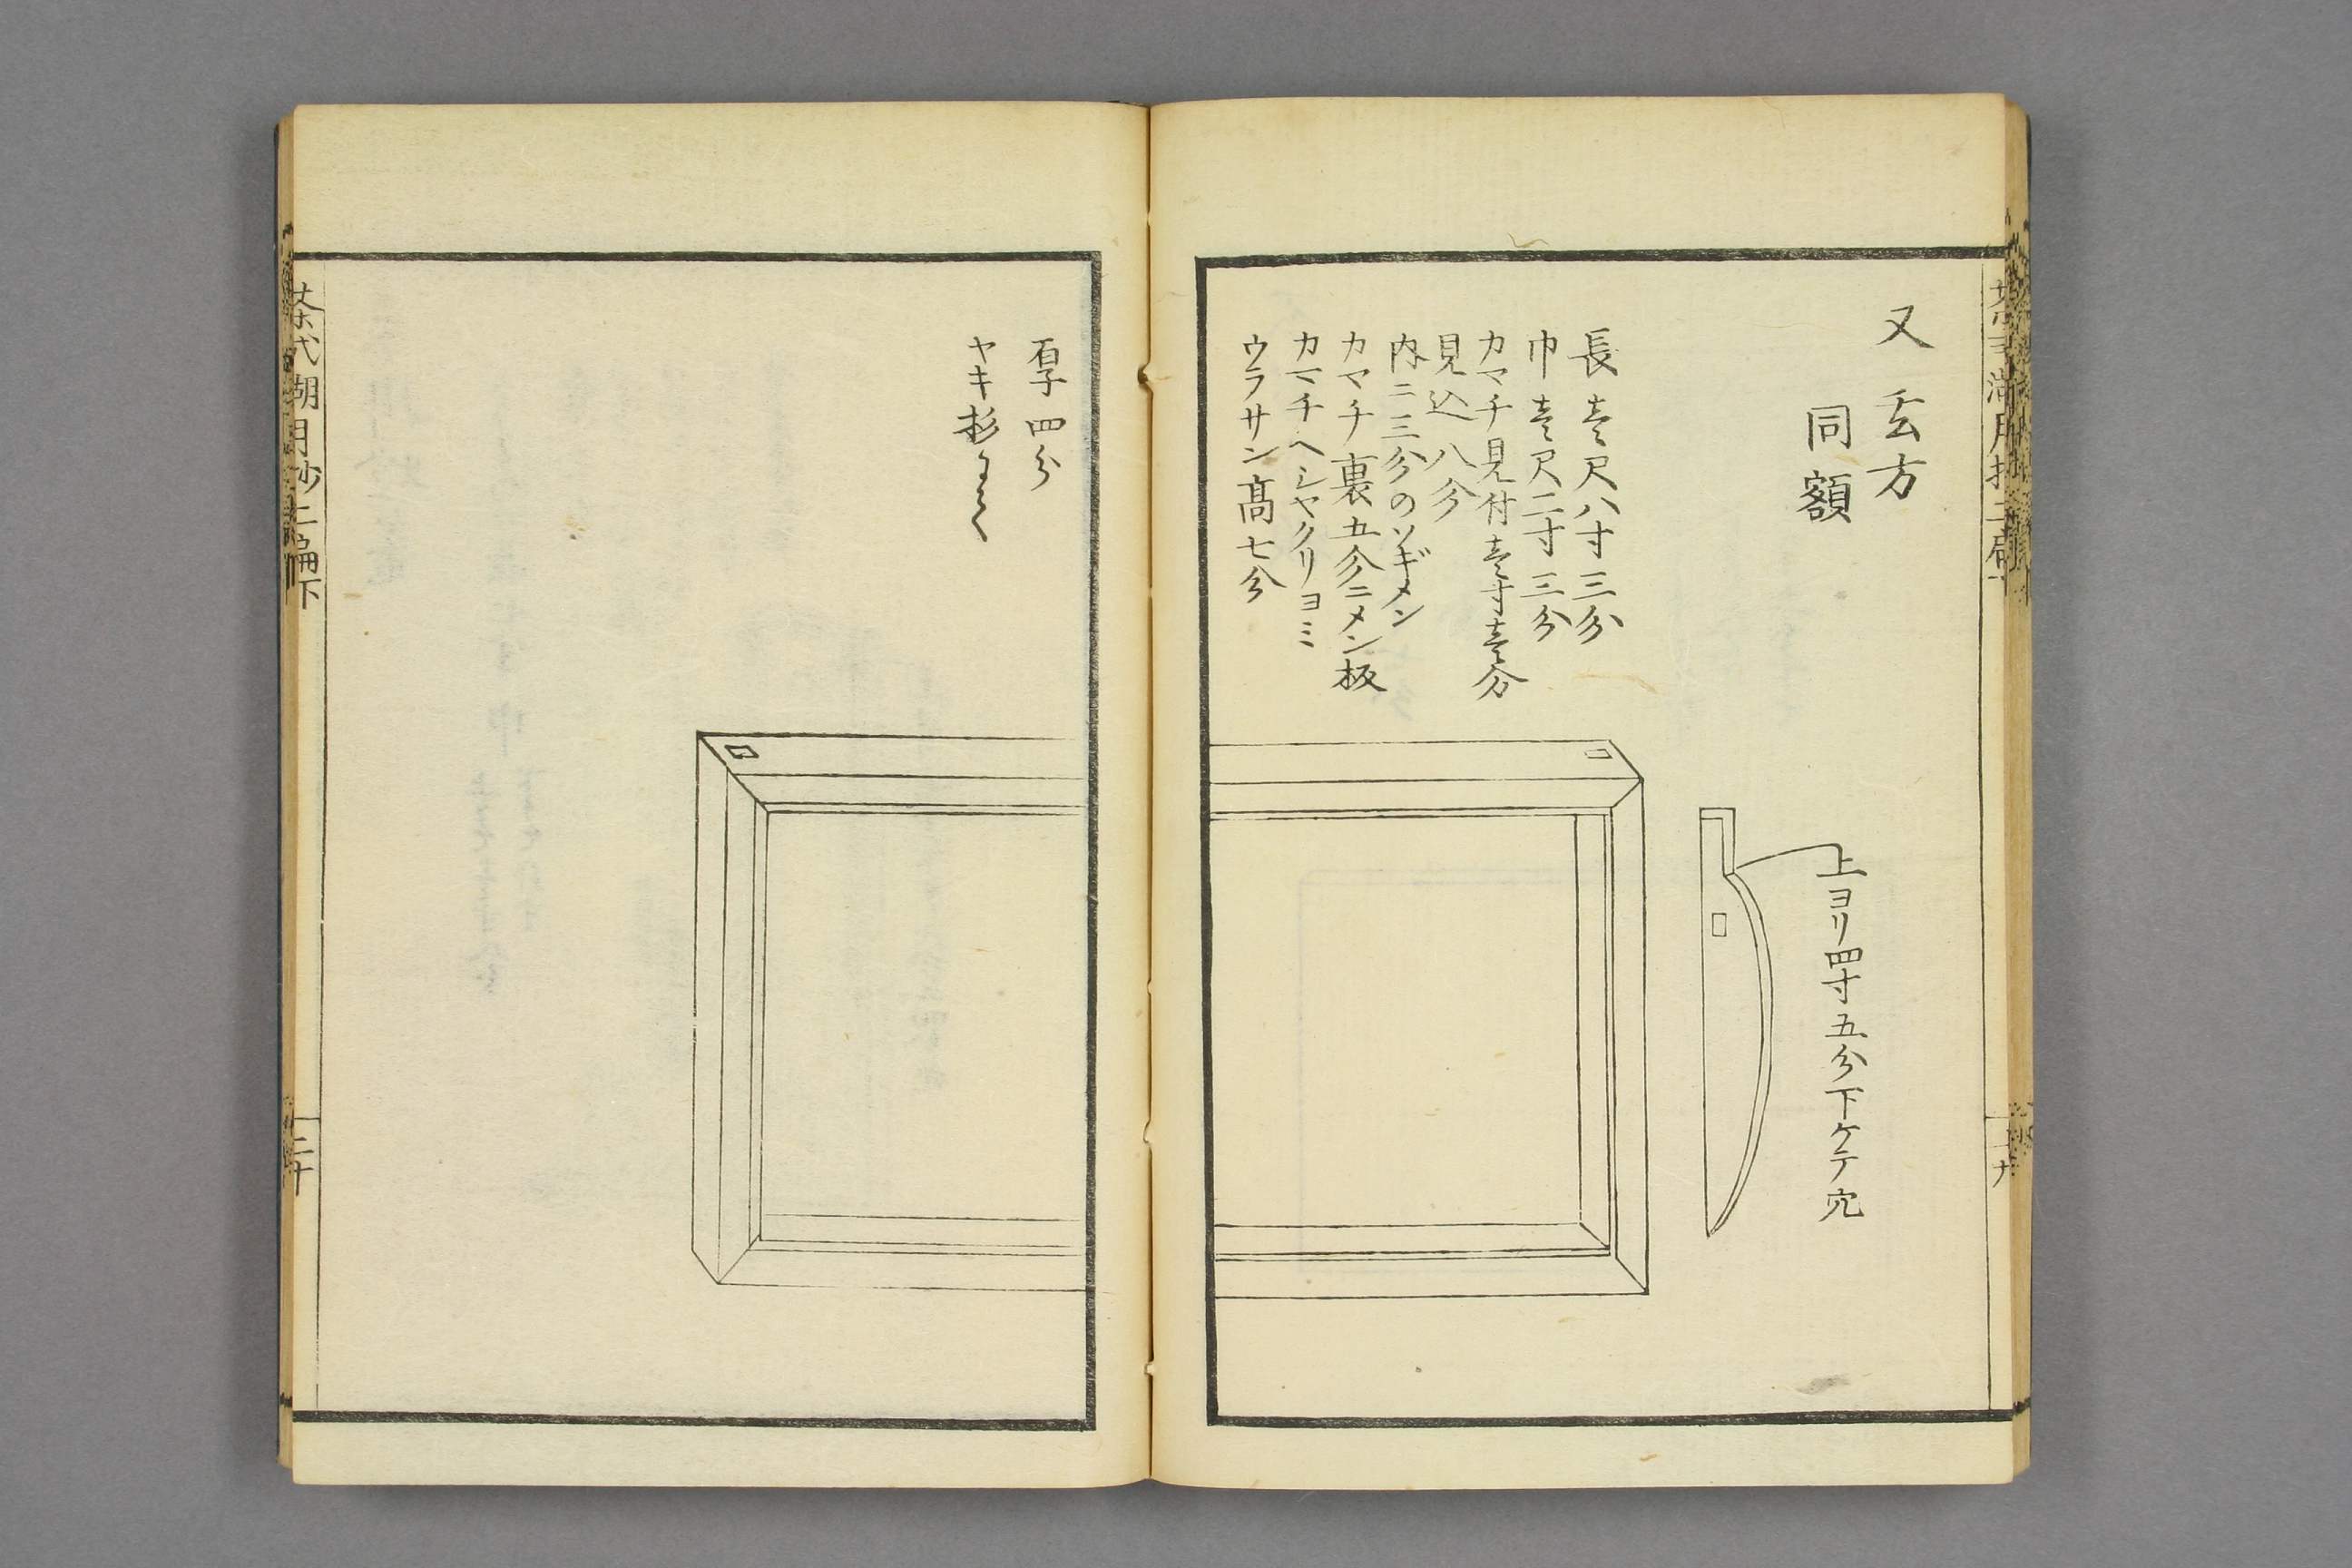 又玄方
同額
長壱尺八寸三分
巾壱尺二寸三分
カマチ見付壱寸壱分
見込八分
内ニ三分のソギメン
カマチ裏五分ニメン板
カマチヘシヤクリヨミ
ウラサン高七分
上ヨリ四寸五分下ケテ穴
厚四分
ヤキ杉にて
茶式湖月抄二編下
二十